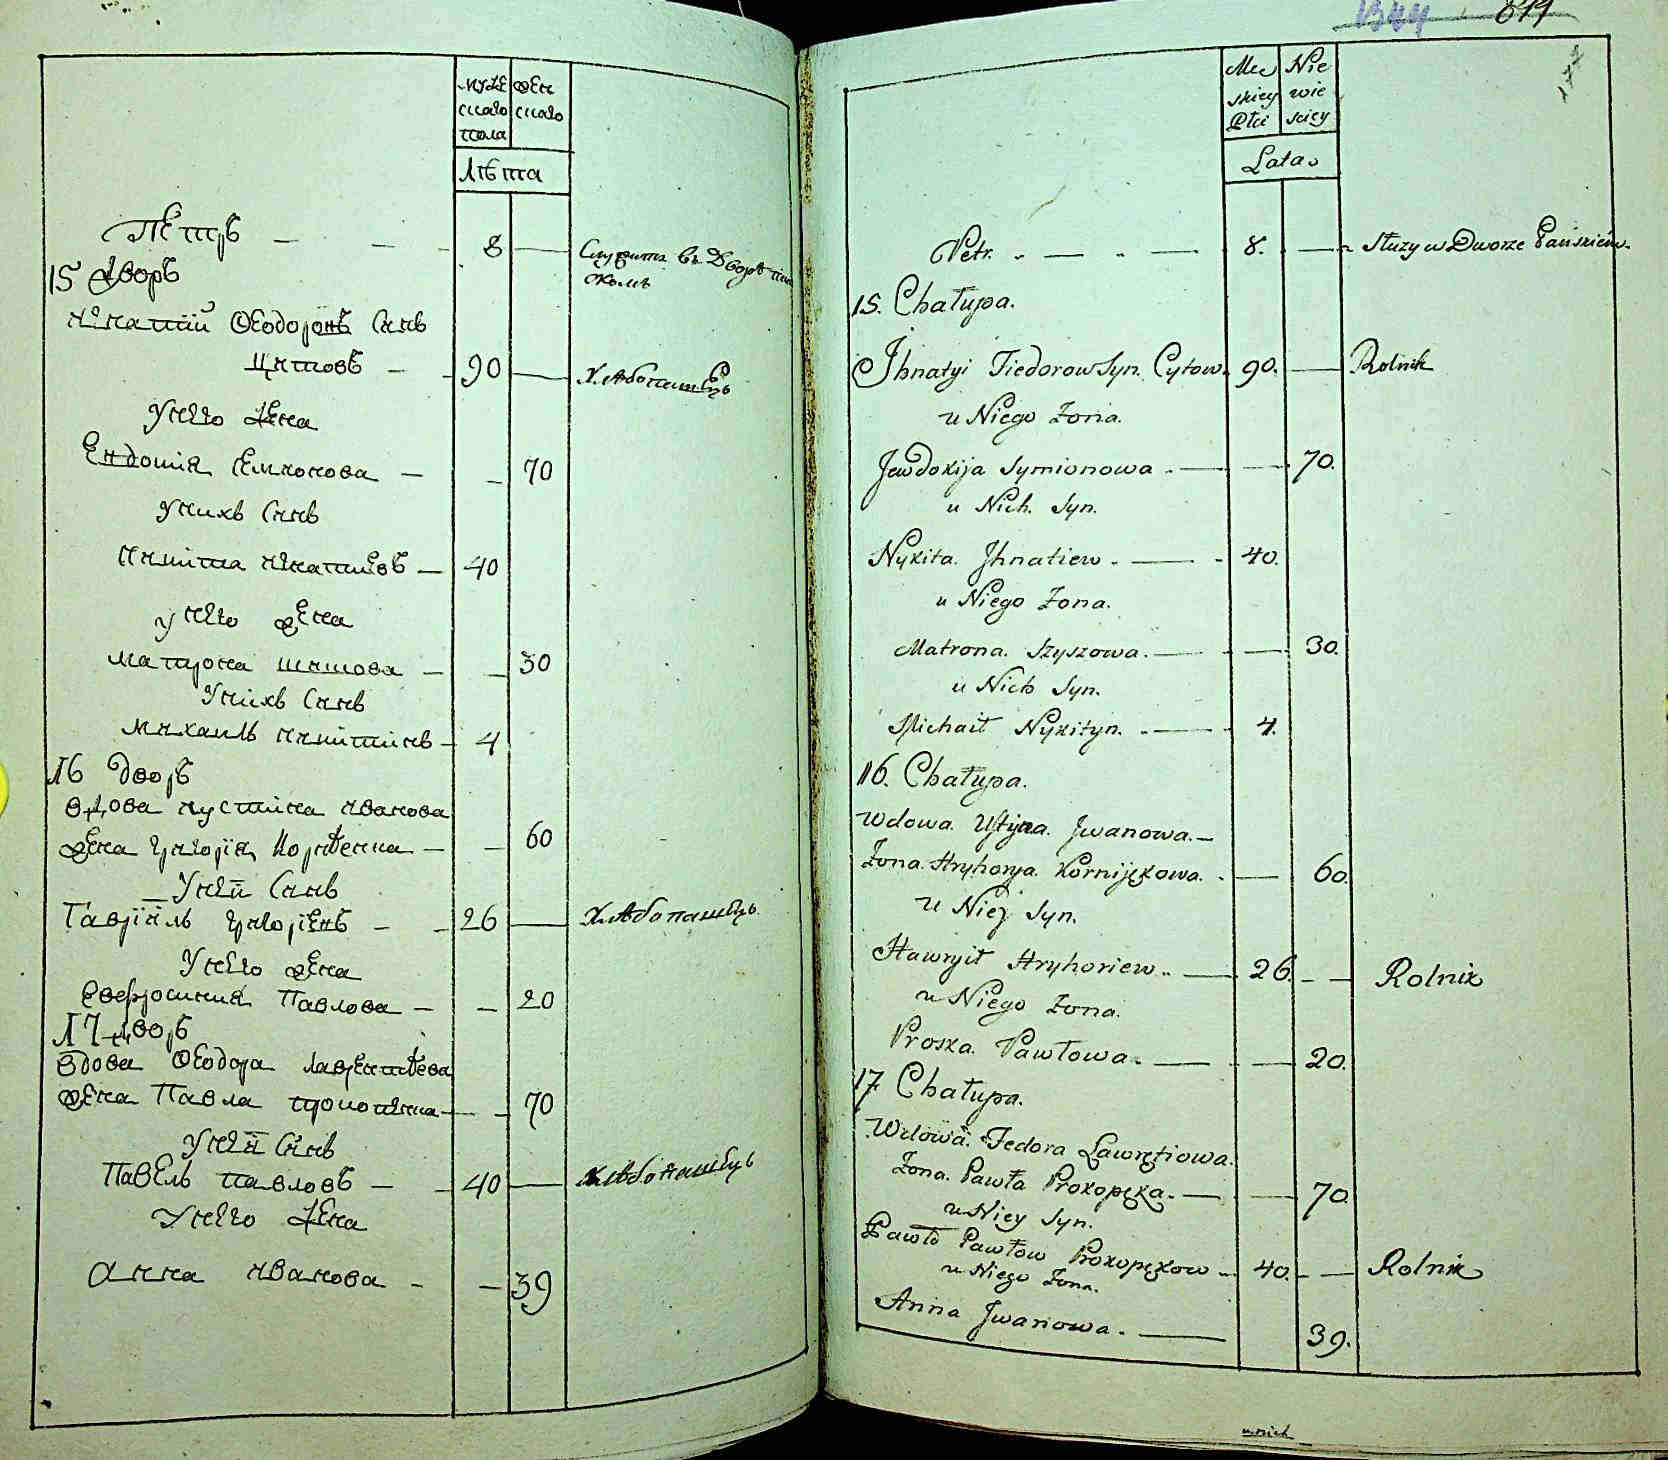 мужескаго пола
женскаго
Лѣта
Петръ 8 Служитъ въ Дворѣ панскомъ
15 дворъ
Игнатiй Феодоровъ Синъ
Цитовъ 90 Хлѣбопашецъ
У него жена
Евдокiя Семионова 70
У нихъ Синъ
Никита Игнатiевъ 40
у него жена
Матрона Шишова 30
У нихъ Синъ
Михаилъ Никитинъ 4
16 дворъ
вдова Иустина Иванова
жена Григорiя Корнѣенка 60
У неи Синъ
Гаврiилъ Григорiевъ 26 Хлѣбопашецъ
У него жена
Евфросиния Павлова 20
17 дворъ
вдова Феодора Лаврентѣева
жена Павла Прокопенка 70
У неи Синъ
Павелъ Павловъ 40 Хлѣбопашецъ
У него жена
Анна Иванова 39
1344 644
177
Męskiey Płci
Niewieściey
Lata
Petr. 8. służy w Dworze Pańskiem
15. Chałupa.
Jhnatyi Fiedorow Syn. Cytow. 90. Rolnik
u Niego Żona.
Jewdokija Symionowa 70.
u Nich. Syn.
Nykita. Jhnatiew 40.
u Niego Żona.
Matrona. Szyszowa. 30.
u Nich Syn.
Michaił Nykityn. 4.
16. Chałupa.
Wdowa. Ustyna. Jwanowa.
Żona. Hryhorya. Kornijękowa. 60.
u Niey Syn.
Hawryił Hryhoriew 26. Rolnik
u Niego Żona.
Proska. Pawłowa. 20.
17 Chałupa.
Wdowa. Fedora Ławrętiowa.
Żona. Pawła Prokopęka. 70.
u Niey Syn.
Pawło Pawłow Prokopękow 40. Rolnik
u Niego Żona.
Anna Jwanowa. 39.
u nich